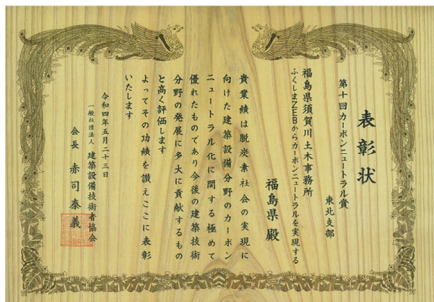 表彰状
第十回カーボンニュートラル賞
東北支部
福島県須賀川土木事務所
ふくしまZEBからカーボンニュートラルを実現する
福島県 殿
貴業績は脱炭素社会の実現に
向けた建築設備分野のカーボン
ニュートラル化に関する極めて
優れたものであり今後の建築技術
分野の発展に多大に貢献するもの
と高く評価します
よってその功績を讃えここに表彰
いたします
令和四年五月二十三日
一般社団法人 建築設備技術者協会
会長 赤司泰義